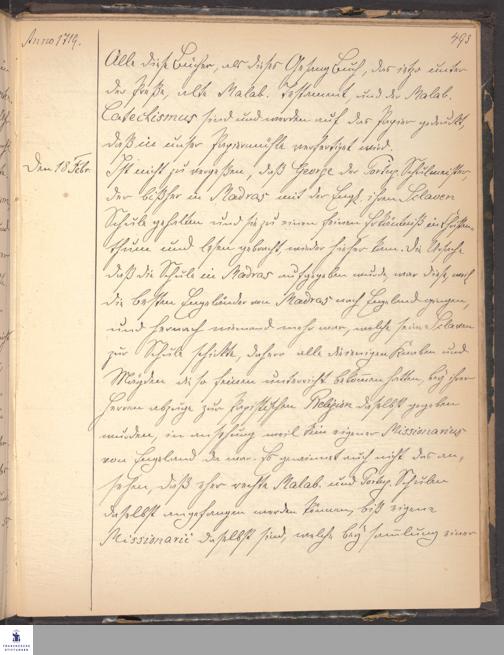 Anno 1719.
493
Alle diese Bücher, als dieses Gesang Buch, das itzo unter
der Presse, alte Malab. Testament, und der Malab.
Catechismus sind und werden auf das Papier gedruckt,
daß in unser Papiermühle verfertiget wird.
Den 18 Febr.
Ist nicht zu vergessen, daß George der Portug. Schulmeister,
der bißher in Madras mit der Engl. ihren Sclaven
Schule gehalten und sie zu einen feinen Erkäntniß in Christen-
thum und lesen gebracht, wieder hieher kam. Die Ursache
daß die Schule in Madras aufgegeben wurde, war diese, weil
die besten Engeländer von Madras nach Engeland gingen,
und hernach niemand mehr war, welche seine Sclaven
zur Schule schickte, dahero alle diejenigen Knaben und
Mägden die so feinen unterricht bekommen hatten, bey ihrer
Herren abzuge zur Papistischen Religion daselbst gegeben
wurden, in ansehung weil kein eigener Missionarius
von Engeland da war. Es gewinnet auch nicht das an-
sehen, daß eher rechte Malab. und Portug. Schulen
daselbst angefangen werden können, biß eigene
Missionarii daselbst sind, welche bey samlung einer
FRANCKESCHE
STIFTUNGEN